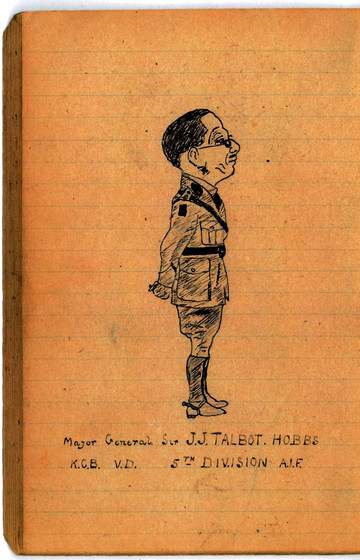 Major General Sir J.J. TALBOT. HOBBS
K.C.B. V.D. 5TH DIVISION A.I.F.